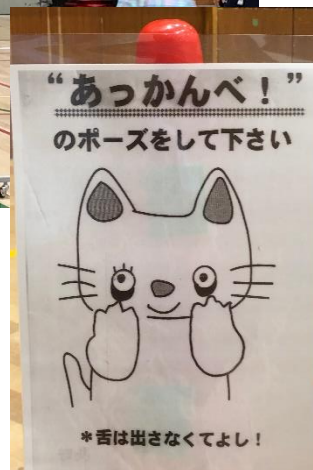 “あっかんべ！”
のポーズをして下さい
＊舌は出さなくてよし！